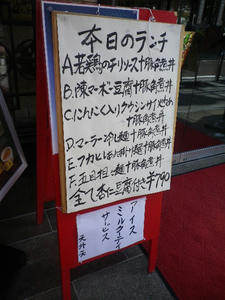 本日のランチ
A.若鶏のチリソース十豚角煮丼
B.陳マーボー豆腐十豚角煮丼
C.にんにく入り
十豚角煮丼
D.マーラー冷し麺十豚角煮丼
E.フカヒレ 麺十豚角煮丼
F.五目 麺十豚角煮丼
全て杏仁豆腐付き¥790
アイス
ミルクティ
サービス